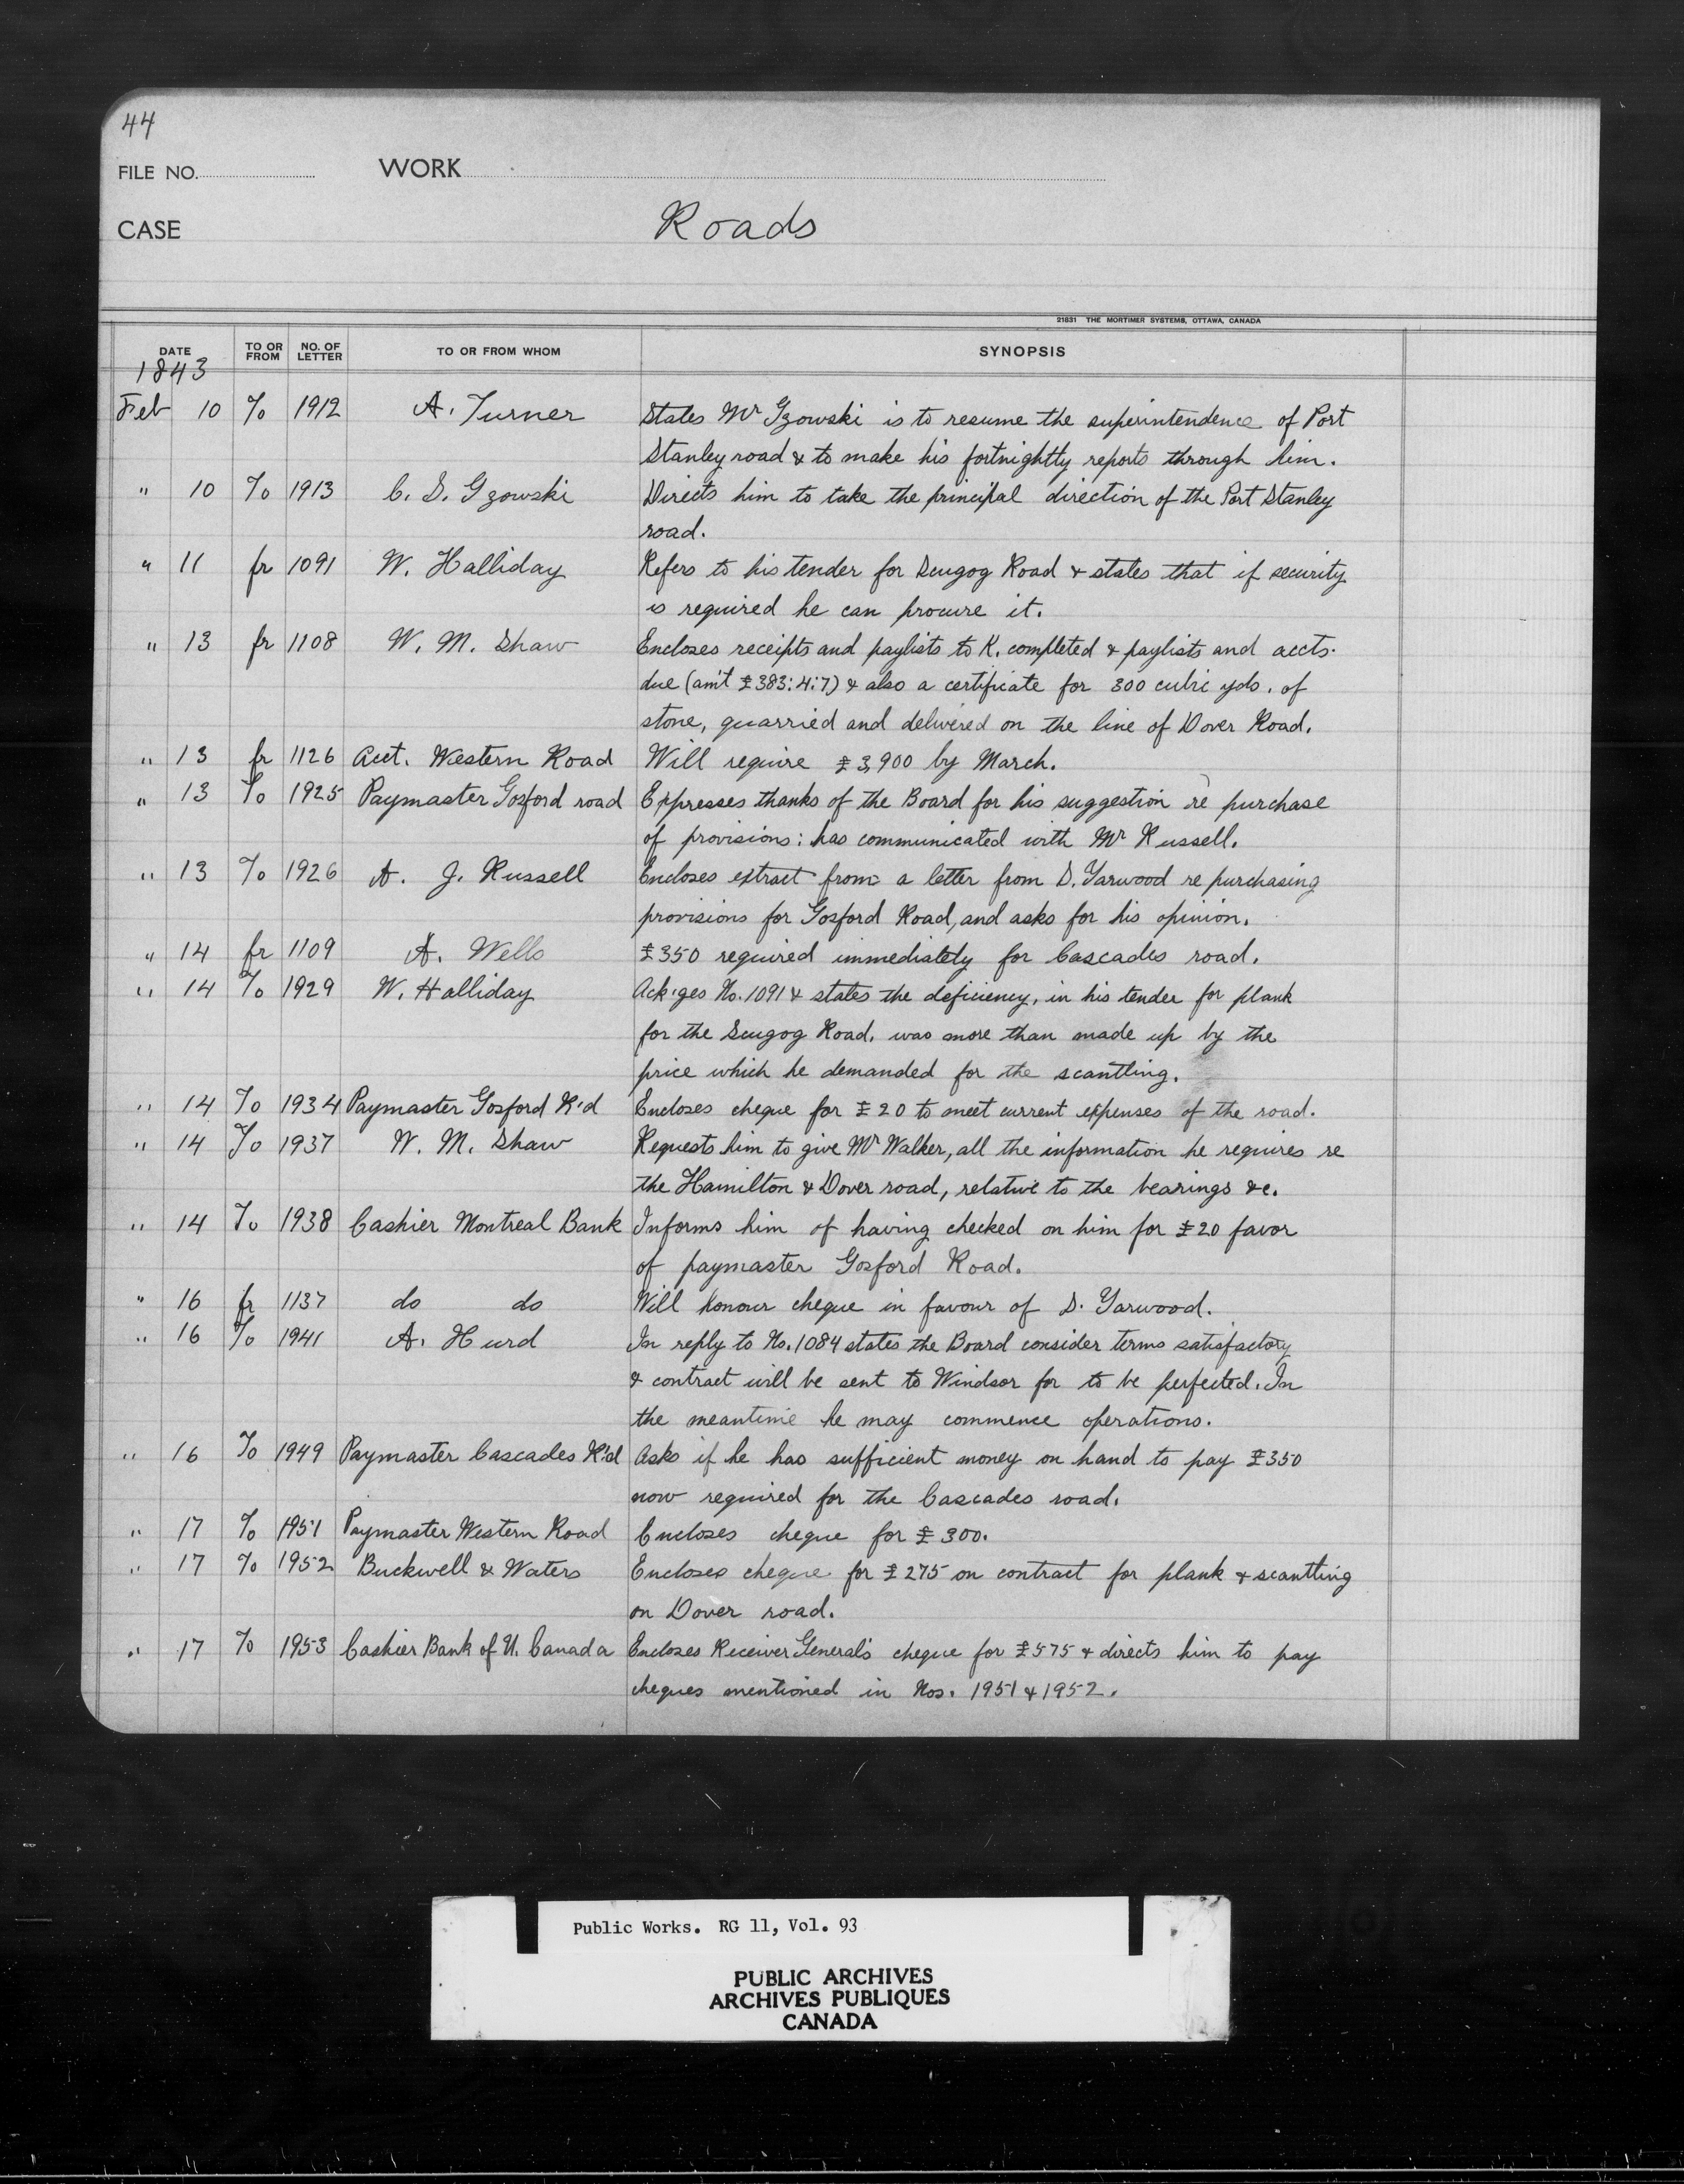 44
FILE NO. WORK
CASE Roads
21831 THE MORTIMER SYSTEMS, OTTAWA, CANADA
DATE TO OR FROM NO. OF LETTER TO OR FROM WHOM SYNOPSIS
1843
Feb 10 To 1912 A. Turner States Mr Gzowski is to resume the superintendence of Port
Stanley road & to make his fortnightly reports through him.
" 10 To 1913 C. S. Gzowski Directs him to take the principal direction of the Port Stanley
road.
" 11 fr 1091 W. Halliday Refers to his tender for Scugog Road & states that if security
is required he can procure it.
" 13 fr 1108 W. M. Shaw Encloses receipts and paylists to K. completed & paylists and accts.
due (am't £383:4:7) & also a certificate for 300 cubic yds. of
stone, quarried and delivered on the line of Dover Road.
" 13 fr 1126 Acct. Western Road Will require £3,900 by March.
" 13 To 1925 Paymaster Gosford road Expresses thanks of the Board for his suggestion re purchase
of provisions: has communicated with Mr Russell.
" 13 To 1926 A. J. Russell Encloses extract from a letter from D. Yarwood re purchasing
provisions for Gosford Road, and asks for his opinion.
" 14 fr 1109 A. Wells £350 required immediately for Cascades road.
" 14 To 1929 W. Halliday Ack'ges No. 1091 & states the deficiency, in his tender for plank
for the Scugog Road, was more than made up by the
price which he demanded for the scantling.
" 14 To 1934 Paymaster Gosford R'd Encloses cheque for £20 to meet current expenses of the road.
" 14 To 1937 W. M. Shaw Requests him to give Mr Walker, all the information he requires re
the Hamilton & Dover road, relative to the bearings &c.
" 14 To 1938 Cashier Montreal Bank Informs him of having checked on him for £20 favor
of paymaster Gosford Road.
" 16 fr 1137 do do Will honour cheque in favour of D. Yarwood.
" 16 To 1941 A. Hurd In reply to No. 1084 states the Board consider terms satisfactory
& contract will be sent to Windsor for to be perfected. In
the meantime he may commence operations.
" 16 To 1949 Paymaster Cascades R'd Asks if he has sufficient money on hand to pay £350
now required for the Cascades road.
" 17 To 1951 Paymaster Western Road Encloses cheque for £300.
" 17 To 1952 Buckwell & Waters Encloses cheque for £275 on contract for plank & scantling
on Dover road.
" 17 To 1953 Cashier Bank of U. Canada Encloses Receiver General's cheque for £575 & directs him to pay
cheques mentioned in Nos. 1951 & 1952.
Public Works. RG 11, Vol. 93
PUBLIC ARCHIVES
ARCHIVES PUBLIQUES
CANADA